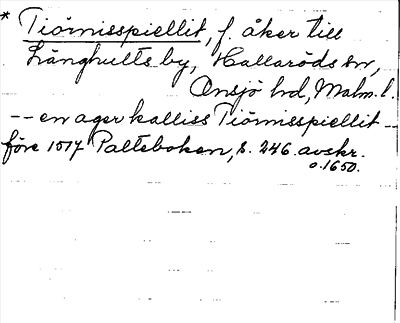 * Tiörnisspiellit, f. åker till
Långhults by, Hallaröds sn,
Onsjö hd, Malm. l.
-- en ager kalliss Tiörnisspiellit --
före 1517 Palteboken, s. 246. avskr.
o. 1650.